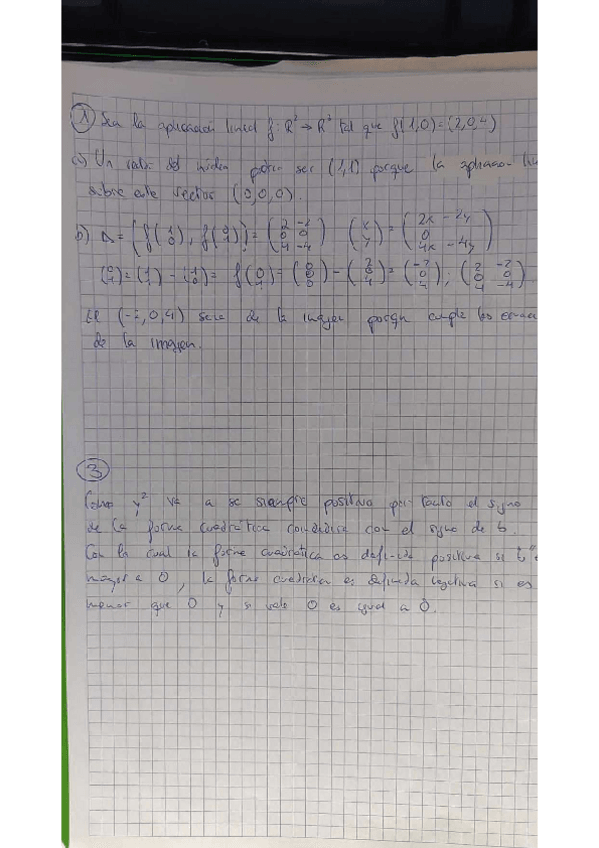 1 Sea la aplicación lineal f: R² → R³ tal que f(1,0)=(2,0,4)
a) Un vector del núcleo podría ser (1,1) porque la aplicación
sobre este vector (0,0,0).
b) A = (f(1 0), f(0 1)) = (2 -2 0 0 4 -4) (x y) = (2x - 2y 0 4x - 4y)
(0 1) = (1 1) - (1 0) = f(0 1) = (0 0 0) - (2 0 4) = (-2 0 4); (2 -2 0 0 4 -4)
El (-2,0,4) sera de la imagen porque cumple las
de la imagen.
3
Como y² va a se siempre positivo por tanto el signo
de la forma cuadrática coincidira con el signo de b.
Con la cual la forma cuadrática es definida positiva si "b"
mayor a 0, la forma cuadrática es definida negativa si es
menor que 0 y si vale 0 es igual a 0.